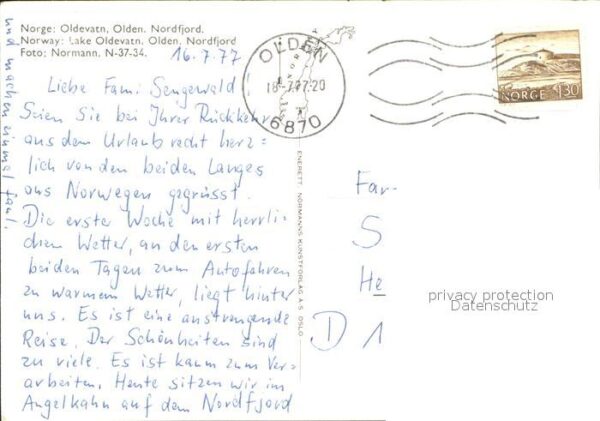 Norge: Oldevatn, Olden. Nordfjord.
Norway: Lake Oldevatn, Olden. Nordfjord
Foto: Normann, N-37-34.
16.7.77
Liebe Fami Sengewald –
Seien Sie bei Ihrer Rückkehr
aus dem Urlaub recht herz=
lich von den beiden Langes
aus Norwegen gegrüsst.
Die erste Woche mit herrli=
chem Wetter, an den ersten
beiden Tagen zum Autofahren
zu warmem Wetter, liegt hinter
uns. Es ist eine anstrengende
Reise. Der Schönheiten sind
zu viele. Es ist kaum zum Ver=
arbeiten. Heute sitzen wir im
Angelkahn auf dem Nordfjord
und machen einmal faul.
OLDEN
18-7.77-20
6870
NORGE 130
ENERETT NORMANNS KUNSTFORLAG A.S OSLO
Fam
S
He
D 1
privacy protection
Datenschutz